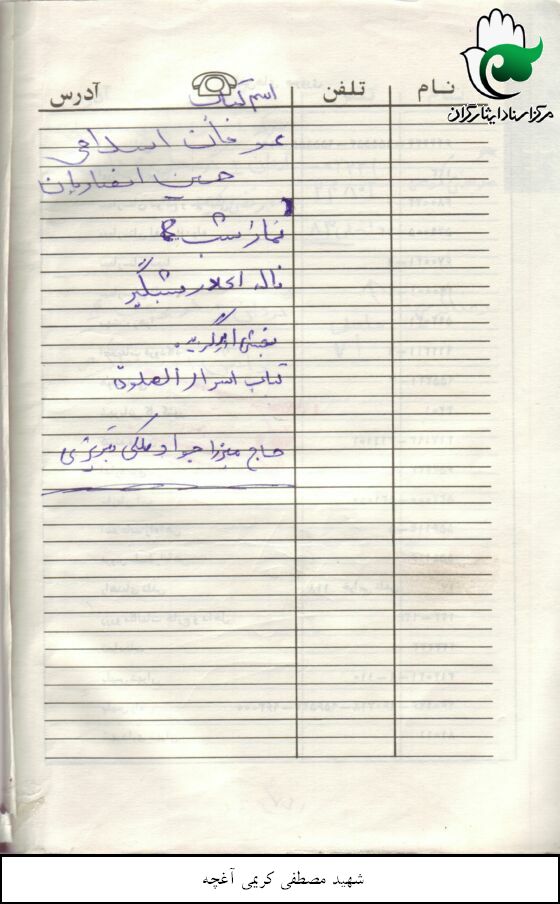 مرکز اسناد ایثارگران
نام تلفن آدرس
اسم کتاب
عرفان اسلامی
حسین انصاریان
نماز شب
ناله ای در شبگیر
نقش
کتاب اسرار الصلوة
حاج میرزا جواد ملکی تبریزی
شهید مصطفی کریمی آغچه